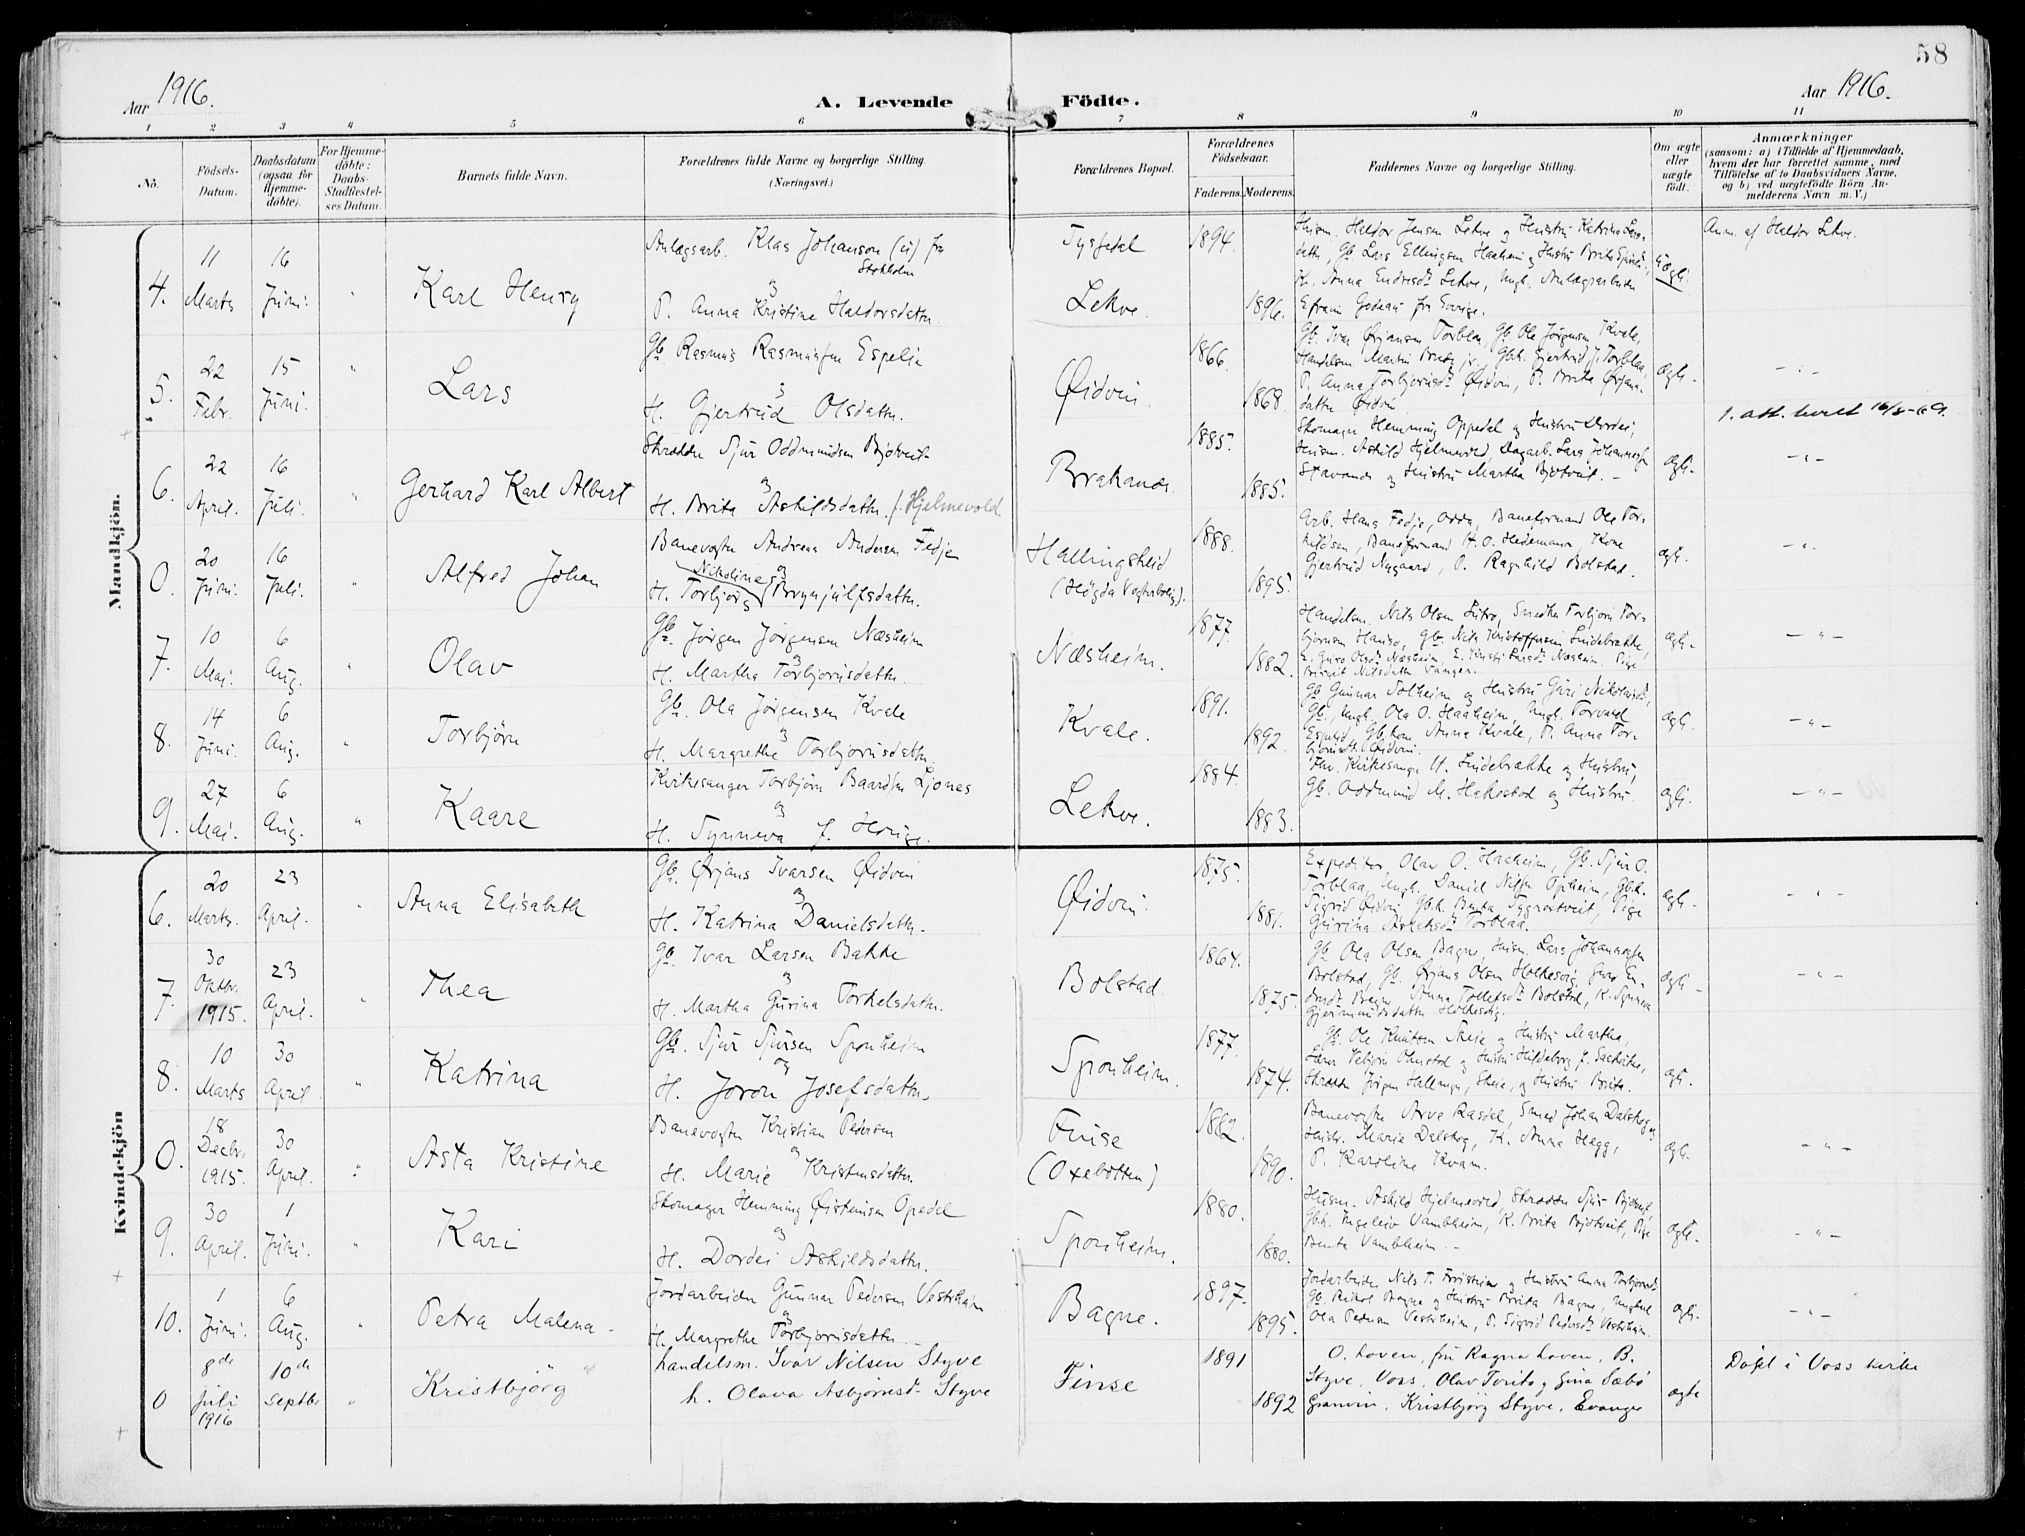 58
Aar 1916.
A. Levende Födte.
Aar 1916.
1 2 3 4 5 6 7 8 9 10 11
No.
Födsels-Datum.
Daabsdatum (ogsaa for Hjemme-döbte).
For Hjemme-döbte: Daabs-Stadfæstel-ses Datum.
Barnets fulde Navn.
Forældrenes fulde Navne og borgerlige Stilling.
(Næringsvei.)
Forældrenes Bopæl.
Forældrenes Födselsaar.
Faderens. Moderens.
Faddernes Navne og borgerlige Stilling.
Om ægte eller uægte födt.
Anmærkninger
(saasom: a) i Tilfælde af Hjemmedaab,
hvem der har forrettet samme, med
Tilföielse af to Daabsvidners Navne,
og b) ved uægtefödte Börn An-
melderens Navn m. V.)
Mandkjön.
4. 11 Marts 16 Juni. " Karl Henry
Anlægsarb. Klas Johanson (u) fra Stokholm
og
P. Anna Kristine Haldorsdatter.
Tysfedal
Lekve.
1894. 1896.
Husm. Haldor Jensen Lekve og Hustru Katrina Lars-
datter, Gb. Lars Ellingsen Haaheim og Hustru Brita
K. Anna Endresdtr Lekve, Ungk. Anlægsarbeider
Efraim fra Sverige.
Uægte.
Anm. af Haldor Lekve.
5. 22 Febr. 15 Juni. " Lars
Gb. Rasmus Rasmussen Espelie
og
H. Gjertrud Olsdatter.
Øidvin.
1866. 1868
Gb. Ivar Ørjansen Torblaa, Gb. Ole Jørgensen Kvale,
Handelsm. Martin jr., Gbk. Gjertrud J. Torblaa,
P. Anna Torbjørnsdtr Øidvin, P. Brita Ørjans-
datter Øidvin
ægte.
- " -
1. att. levert 16/8-69.
6. 22 April. 16 Juli. " Gerhard Karl Albert
Skrædder Sjur Oddmundsen Bjotveit
og
H. Brita Askildsdatter. f. Hjelmevold
Brakanes.
1885. 1885.
Skomager Hemming Oppedal og Hustru Dordei,
Husm. Askild Hjelmevold, Dagarb. Lars Johannessen
Stavanes og Hustru Martha Bjotveit. -
ægte.
- " -
0. 20 Juni. 16 Juli. " Alfred Johan
Banevogter Andreas Andersen Fedje
Nikoline og
H. Torbjørg Brynjulfsdatter.
Hallingskeid
(Høgda Vogterbolig).
1888. 1895.
Arb. Hans Fedje, Odda, Baneformand Ole Tor-
kildsen, Baneformand H. O. Hedemann, Kone
Gjertrud Nygaard, P. Ragnhild Bolstad.
ægte.
- " -
7. 10 Mai. 6 Aug. " Olav
Gb. Jørgen Jørgensen Næsheim
og
H. Martha Torbjørnsdatter.
Næsheim.
1877. 1882.
Handelsm. Nils Olsen Seim, Smed Torbjørn Tor-
bjørnsen Hanso, Gb. Nils Kristoffersen Lindebrække,
E. Guro Olsdtr Næsheim, E. Kristi Larsdtr Næsheim, Pige
Nilsdatter Vangen.
ægte.
- " -
8. 14 Juni. 6 Aug. " Torbjørn
Gb. Ola Jørgensen Kvale
og
H. Margrethe Torbjørnsdatter.
Kvale.
1891. 1892.
Gb. Gunnar Solheim og Hustru Guri Nikolaisdtr,
Gb. Ungk. Ola O. Haaheim, Ungk. Torvald
Espelid, Gb. kone Anna Kvale, P. Anna Tor-
bjørnsdtr. Øidvin.
ægte.
- " -
9. 27 Mai. 6 Aug. " Kaare
Kirkesanger Torbjørn Baardsen Ljones
og
H. Synneva f. Horige.
Lekve.
1884. 1883.
Kirkesanger H. Lindebrække og Hustru,
Gb. Oddmund M. Hakestad og Hustru.
ægte.
- " -
Kvindekjön
6. 20 Marts. 23 April. " Anna Elisabeth
Gb. Ørjans Ivarsen Øidven
og
H. Katrina Danielsdatter.
Øidvin.
1875. 1881.
Expeditør Olav O. Haaheim, Gb. Sjur O.
Torblaa, Ungk. Daniel Nilsen Opheim, Gbk.
Sigrid Øidvin, Gbk. Benta Tyggestveit, Pige
Gurina Aslaksdtr Torblaa.
ægte.
- " -
7. 30 Oktbr. 1915. 23 April. " Thea
Gb. Ivar Larsen Bakke
og
H. Martha Gurina Torkelsdatter.
Bolstad.
1864. 1875.
Gb. Ola Olsen Bagne, Husm. Lars Johannessen
Bolstad, Gb. Ørjans Olsen Holkesvig, Guro En-
dresdtr Bagne, Anna Tollefsdtr Bolstad, K. Synneva
Gjermundsdatter Holkesvig.
ægte.
- " -
8. 10 Marts 30 April. " Katrina
Gb. Sjur Sjursen Sponheim
og
H. Joron Josefsdatter.
Sponheim.
1877. 1874.
Gb. Ole Knutsen Skeie og Hustru Martha,
Lærer Vebjørn Olmstad og Hustru Hildeborg f. Saakvitne,
Skrædder Jørgen Hallanger, Skeie, og Hustru Brita.
ægte.
0. 18 Decbr. 1915. 30 April. " Asta Kristine
Banevogter Kristian Pedersen
og
H. Marie Kristensdatter.
Finse
(Oxebotten)
1882. 1890.
Banevogter Arve Rasdal, Smed Johan Dalskog og
Hustru Marie Dalskog, K. Anna Hegg,
P. Karoline Kvam.
ægte.
- " -
9. 30 April. 1 Juni. " Kari
Skomager Hemming Øisteinsen Opedal
og
H. Dordei Askildsdatter.
Sponheim.
1880. 1880.
Husm. Askild Hjelmevold, Skrædder Sjur Bjotveit,
Gbk. Ingeleiv Vambheim, K. Brita Bjotveit, Pige
Benta Vambheim. -
ægte.
- " -
10. 1 Juni. 6 Aug. " Petra Malena
Jordarbeider Gunnar Pedersen Vestrheim
og
H. Margrethe Torbjørnsdatter.
Bagne.
1897. 1895.
Jordarbeider Nils T. og Hustru Anna Torbjørnsdtr
Gb. Bagne og Hustru Brita Bagne, Ungkarl
Ola Pedersen Vestrheim, P. Sigrid Pedersdtr Vestrheim.
ægte.
- " -
0 8de Juli 1916 10de Septbr " Kristbjörg
Handelsm. Ivar Nilsen Styve
h. Olava Asbjørnsdtr Styve
Finse
1891 1892
O. Loven, fru Ragna Loven, B.
Styve, Voss, Olav Tvito og Gina Sæbö
Granvin. Kristbjörg Styve, Evanger
ægte
Döpt i Voss kirke